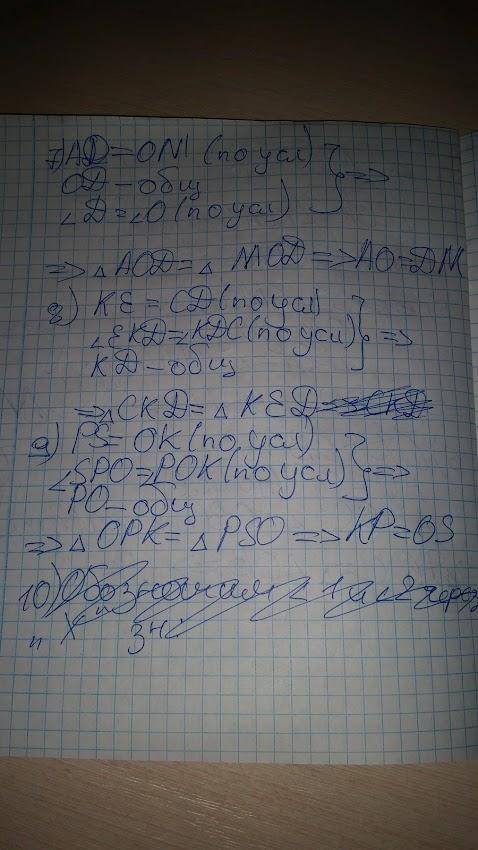 7) AD = OM (по усл)
OD - общ
∠D = ∠O (по усл) } =>
=> △ AOD = △ MOD => AO = DM
8) KE = CD (по усл)
∠EKD = ∠KDC (по усл) } =>
KD - общ
=> △ CKD = △ KED
9) PS = OK (по усл)
∠SPO = POK (по усл) } =>
PO - общ
=> △ OPK = △ PSO => KP = OS
10) Обозначам ∠ 1 и ∠ 2 через